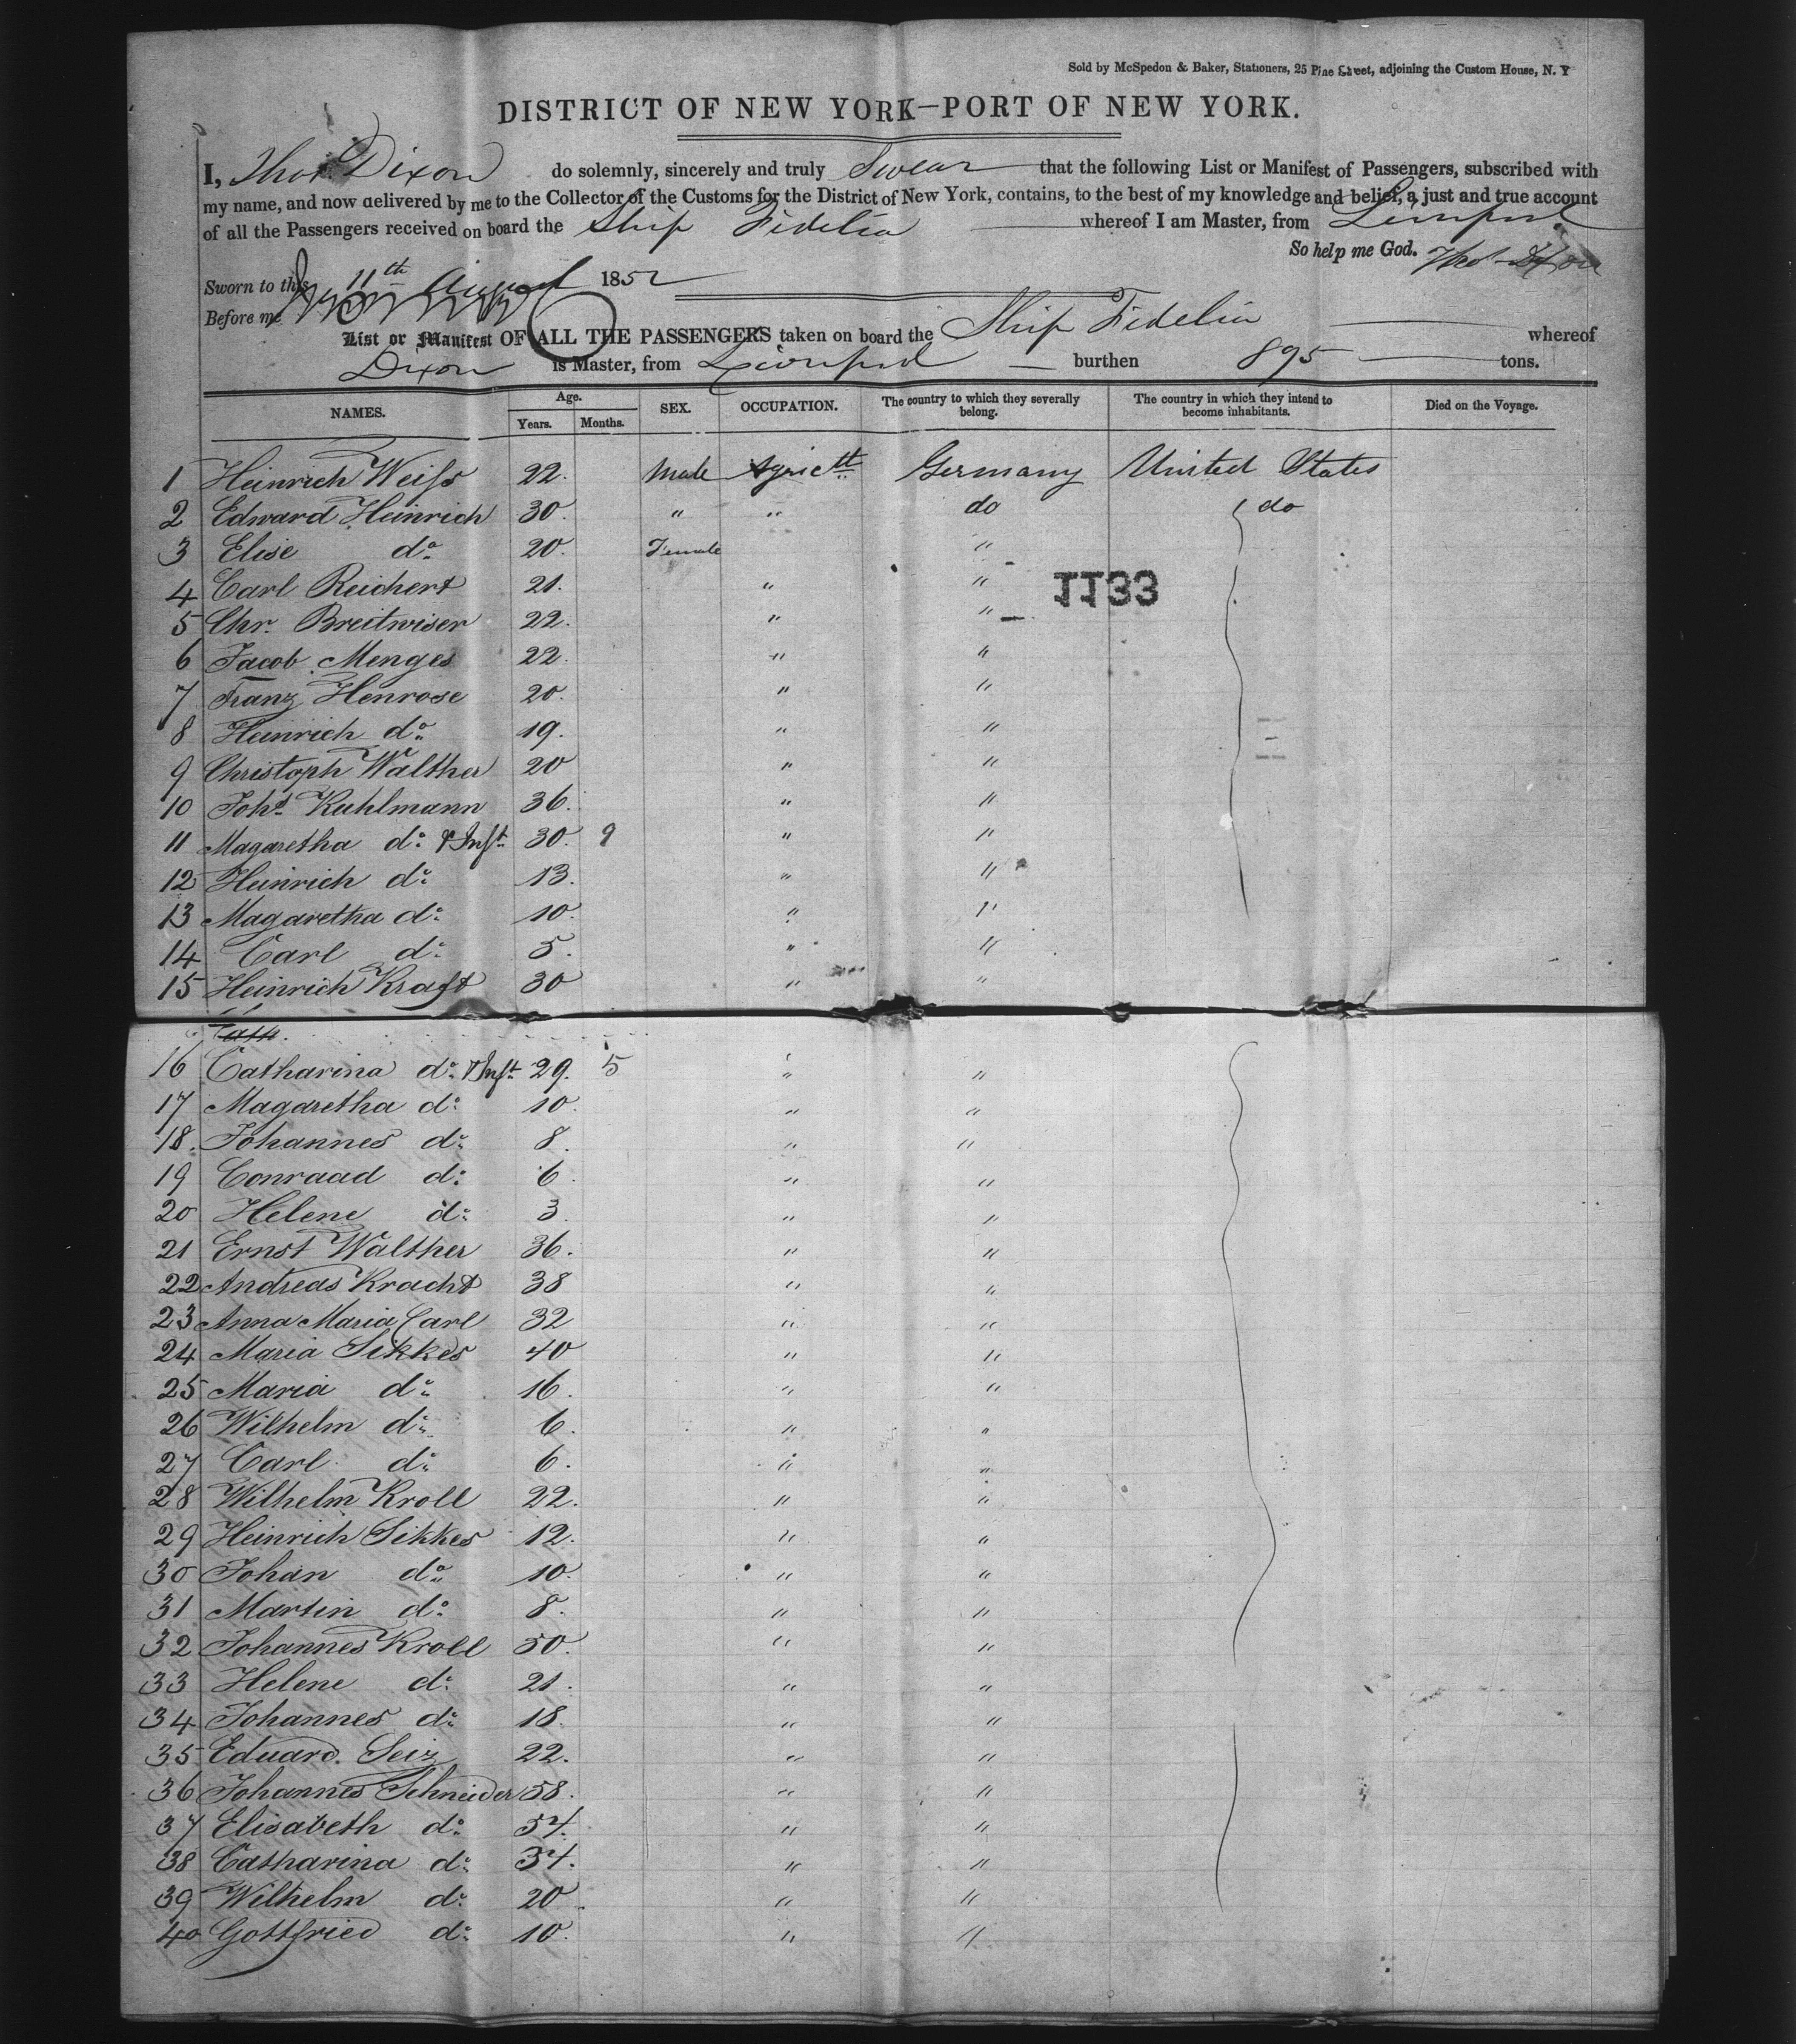 Sold by McSpedon & Baker, Stationers, 25 Pine Street, adjoining the Custom House, N. Y
DISTRICT OF NEW YORK—PORT OF NEW YORK.
I, Thos. Dixon do solemnly, sincerely and truly Swear that the following List or Manifest of Passengers, subscribed with
my name, and now delivered by me to the Collector of the Customs for the District of New York, contains, to the best of my knowledge and belief, a just and true account
of all the Passengers received on board the Ship Fidelia whereof I am Master, from Liverpool
So help me God. Thos Dixon
Sworn to this 11th August 1852
Before me
List or Manifest OF ALL THE PASSENGERS taken on board the Ship Fidelia whereof
Dixon is Master, from Liverpool burthen 895 tons.
NAMES. Age. Years. Months. SEX. OCCUPATION. The country to which they severally belong. The country in which they intend to become inhabitants. Died on the Voyage.
1 Heinrich Weiss 22. Male Agricltt Germany United States
2 Edward Heinrich 30. " " do do
3 Elise do 20. Female "
4 Carl Reichert 21. " "
1133
5 Chr. Breitwiser 22. " "
6 Jacob Menges 22. " "
7 Franz Henrose 20. " "
8 Heinrich do 19. " "
9 Christoph Walther 20 " "
10 Johs Kuhlmann 36. " "
11 Magaretha do & Inft 30. 9 " "
12 Heinrich do 13. " "
13 Magaretha do 10. " "
14 Carl do 5. " "
15 Heinrich Kraft 30 " "
Cath.
16 Catharina do & Inft 29. 5 " "
17 Magaretha do 10. " "
18. Johannes do 8. " "
19 Conraad do 6. " "
20 Helene do 3. " "
21 Ernst Walther 36. " "
22 Andreas Kracht 38 " "
23 Anna Maria Carl 32 " "
24 Maria Sikkes 40 " "
25 Maria do 16. " "
26 Wilhelm do 6. " "
27 Carl do 6. " "
28 Wilhelm Kroll 22. " "
29 Heinrich Sikkes 12. " "
30 Johan do 10. " "
31 Martin do 8. " "
32 Johannes Kroll 50. " "
33 Helene do 21. " "
34 Johannes do 18. " "
35 Eduard Seiz 22. " "
36 Johannes Schneider 58. " "
37 Elisabeth do 54. " "
38 Catharina do 34. " "
39 Wilhelm do 20 " "
40 Gottfried do 10. " "